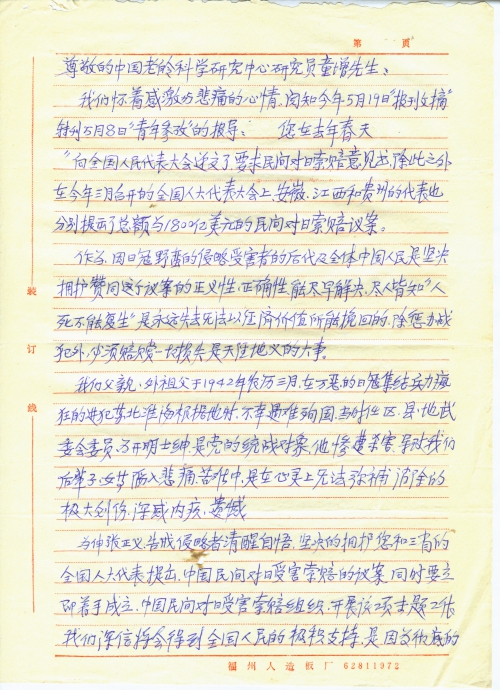 第 页
尊敬的中国老龄科学研究中心研究员童增先生:
我们怀着感激与悲痛的心情。阅知今年5月19日"报刊文摘"
转刊5月8日"青年参考"的报导: 您在去年春天
"向全国人民代表大会递交了要求民间对日索赔意见书,除此之外
在今年三月召开的全国人大代表大会上,安徽、江西和贵州的代表也
分别提出了总额为1800亿美元的民间对日索赔议案。
作为因日寇野蛮的侵略受害者的后代及全体中国人民是坚决
拥护赞同这个议案的正义性,正确性,能尽早解决,尽人皆知"人
死不能复生"是永远失去无法以经济价值所能挽回的,除惩办战
犯外,必须赔偿一切损失是天经地义的大事。
我们父亲,外祖父于1942年农历三月,在万恶的日寇集结兵力疯
狂的进犯苏北淮海根据地时,不幸遇难殉国,当时任区、县、地武
委会委员,了开明士绅,是党的统战对象,他惨遭杀害,导致我们
后辈子女陷入悲痛苦难中,是在心灵上无法弥补 消除的
极大创伤,深感内疚,遗憾
为伸张正义,告戒侵略者清醒自悟,坚决的拥护您和三省的
全国人大代表提出,中国民间对日受害索赔的议案,同时要立
即着手成立,中国民间对日受害索赔组织,开展这项主题工作
我们深信将会得到全国人民的极积支持,是因为彻底的
装
订
线
福州人造板厂 62811972